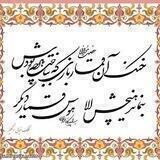 خنک آن قماربازی که بباخت آنچه بودش
بنماند هیچش الا هوس قمار دیگر